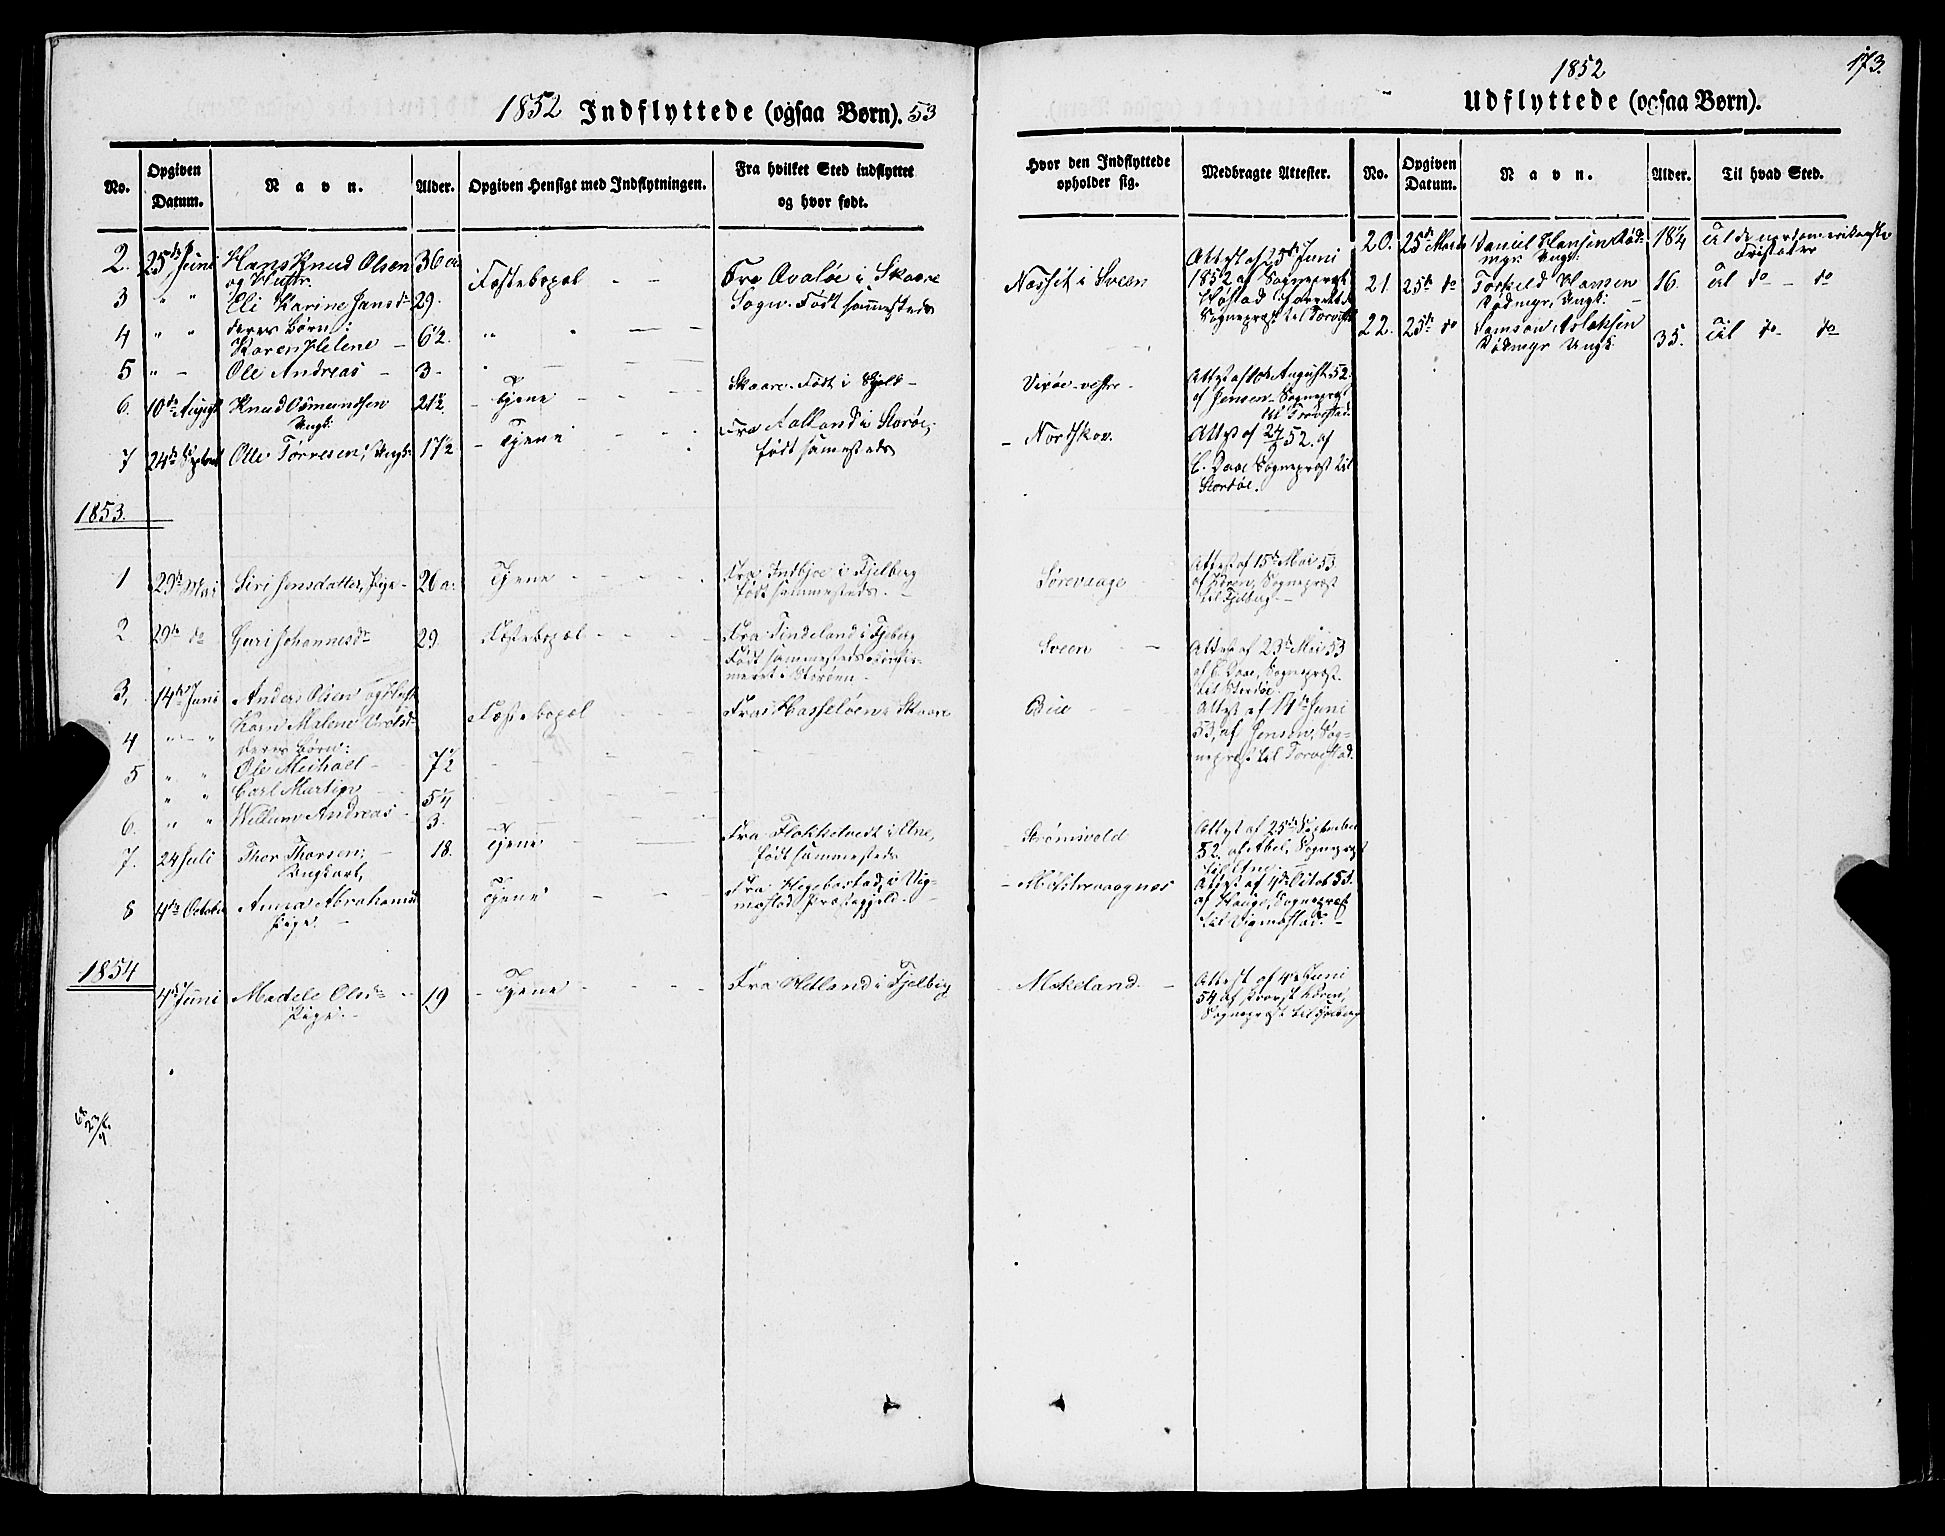 173.
1852 Indflyttede (ogsaa Børn). 53
1852
Udflyttede (ogsaa Børn).
No.
Opgiven Datum.
Navn.
Alder.
Opgiven Hensigt med Indflytningen.
Fra hvilket Sted indflyttet og hvor født.
Hvor den Indflyttede opholder sig.
Medbragte Attester.
No.
Opgiven Datum.
Navn.
Alder.
Til hvad Sted.
2. 25de Juni Hans Knud Olsen 36 a.
og Hustr.
Fæstebopæl - -
Fra Avaløe i Skaare
Sogn. Født sammesteds
Næsset i Sveen
Attest af 25de Juni
1852 af Sognepræst
Sognepræst til Torvestad
3 " " Eli Karine Jansd. 29.
deres børn:
4 " " Karen Helene - 6½. " "
5 " - Ole Andreas - 3 -
6. 10de August Knud Osmundsen 21½. - Tjene
Ungk.
Skaare. Født i
vestre -
Attest af 10de August 52.
af Jensen - Sognepræst
til Torvestad.
7 24de Septembr Olle Tørresen, Ungk. 17½ - Tjene
Fra Aadland i Storøe,
født sammesteds
- Nordskov.
Attest af 24/9 52. af
C. Daae Sognepræst til
Stordøe.
1853.
1 29de Mai Siri Jensdatter, Pige - 26 a. Tjene - - -
Fra i Fjelberg
født sammesteds. -
Sørevaage
Attest af 15de Mai 53
af Koren, Sognepræst
til Fjelberg -
2 29de do Guri Johannesdr 29 Fæstebopæl - - -
Fra Tindeland i Fjelberg
Født sammesteds
i Storøen -
Sveen -
Attest af 23de Mai 53
af C. Daae, Sognepræst
til Stordøe.
3, 14de Juni Anders Olsen og Hustr
Malene
deres børn:
Fæstebopæl - -
Fra Hasseløen i Skaare
Bue - -
Attest af 14de Juni
53, af Jensen, Sog-
nepræst til Torvestad.
4 " - "
5 " " Ole Michael - 7½ - -
" " Carl Martin 5¼
6. " " Willum Andreas - 3.
7. 24 Juli Thor Thorsen; - 18. Tjene - -
Ungkarl,
Fra i Etne,
født sammesteds
- Strømsvold
Attest af 25de September
52. af Abel, Sognepræst
til Etne -
8 4de October Anna Abrahamsd Tjene - -
Pige. -
Fra Hegebostad, i Vig-
mostad Præstegjeld. -
- Mølstrevaagnes
Attest af 4de Octob 53.
af Hauge, Sognepræst
til Vigmostad. -
1854
4de Juni Madele Olsdr - 19 - Tjene - - -
Pige. -
Fra Hetland i Fjelberg
- Mokeland. -
Attest af 4de Juni
54 af Provst Koren,
Sognepræst til Fjelberg
20. 25de Marts Daniel Hansen Rød- 18¼ Til de nordamerikanske
myr. Ungk: Fristater
21. 25de do Torkeld Hansen 16. Til do - do
Rødmyr, Ungk: -
22. 25de do Samson Aslaksen 35. Til do - do
Rødmyr Ungk